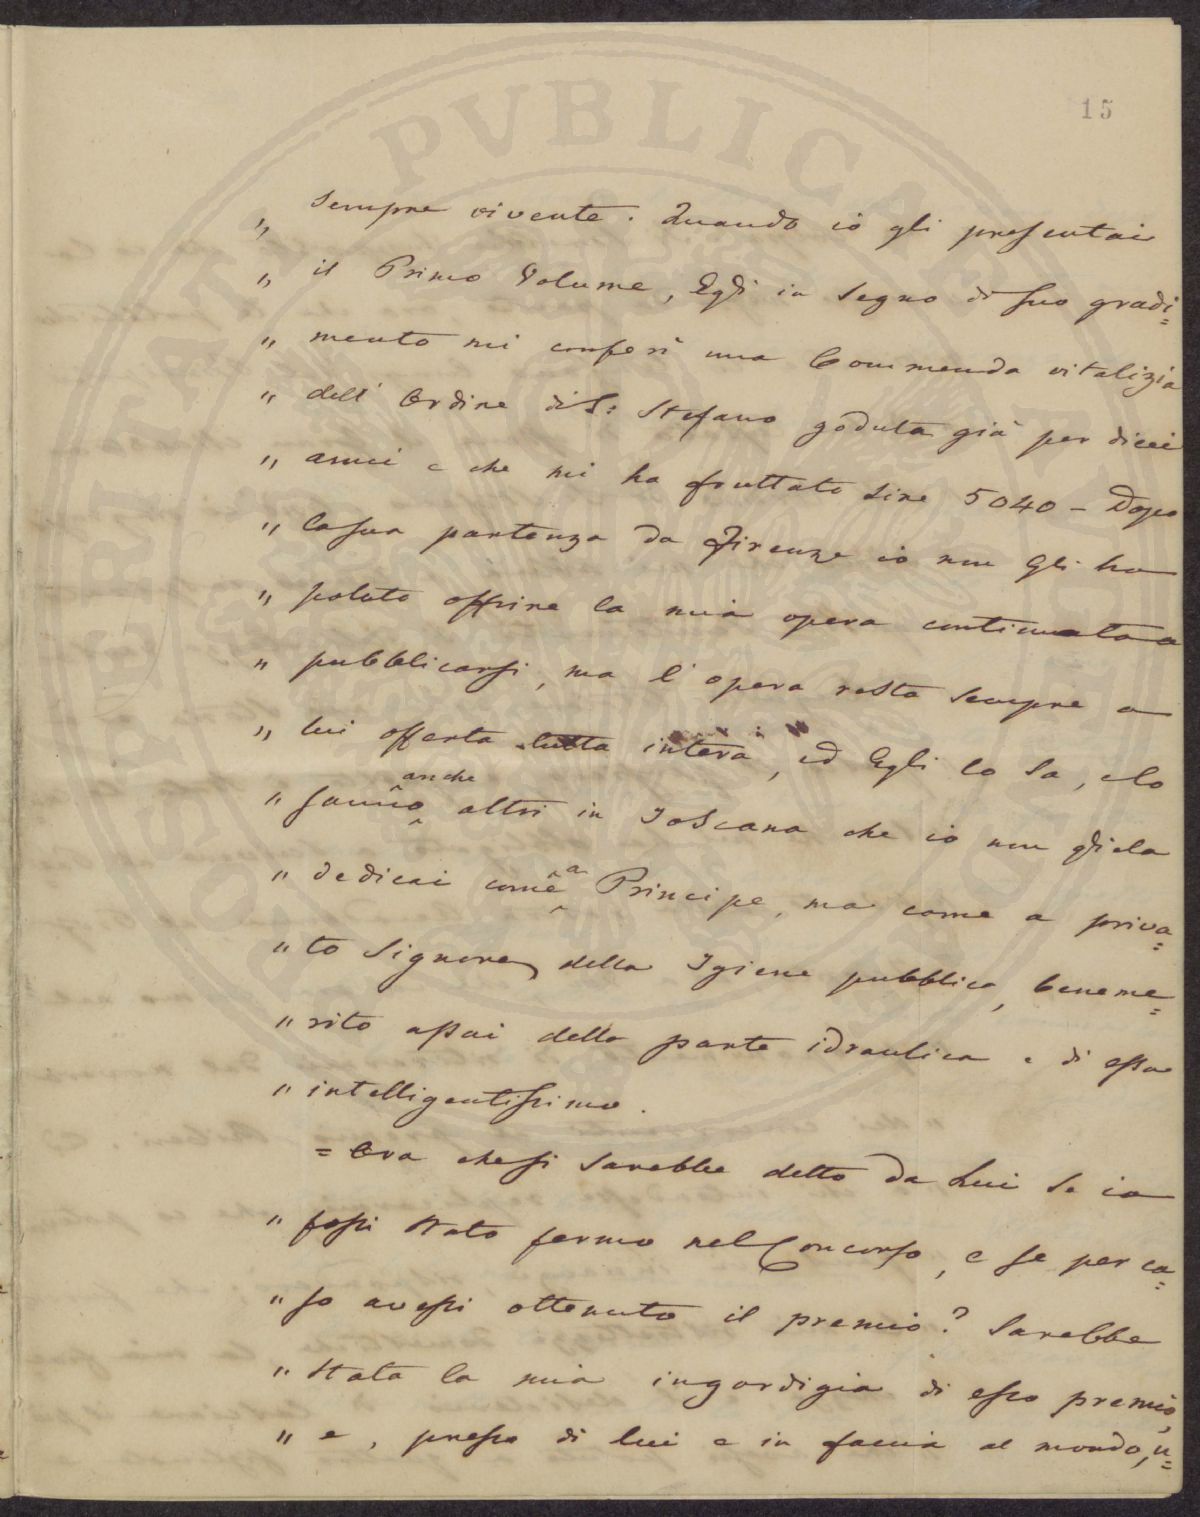 15
„ sempre vivente. Quando io gli presentai
„ il Primo Volume, Egli in segno di suo gradi=
„ mento mi conferì una Commenda vitalizia
„ dell' Ordine di S: Stefano goduta già per dieci
„ anni e che mi ha fruttato Lire 5040 – Dopo
„ la sua partenza da Firenze io non gli ho
„ potuto offrire la mia opera continuata a
„ pubblicarsi, ma l'opera resta sempre a
„ lui offerta tutta intera, ed Egli lo sa, e lo
anche
„ sanno altri in Toscana che io non gliela
„ dedicai come a Principe, ma come a priva=
„ to Signore, della Igiene pubblica, beneme=
„ rito assai della parte idraulica e di essa
„ intelligentissimo.
= Ora che si sarebbe detto da Lui se io
„ fossi stato fermo nel Concorso, e se per ca=
„ so avessi ottenuto il premio? Sarebbe
„ stata la mia ingordigia di esso premio,
„ e, presso di lui e in faccia al mondo, u=